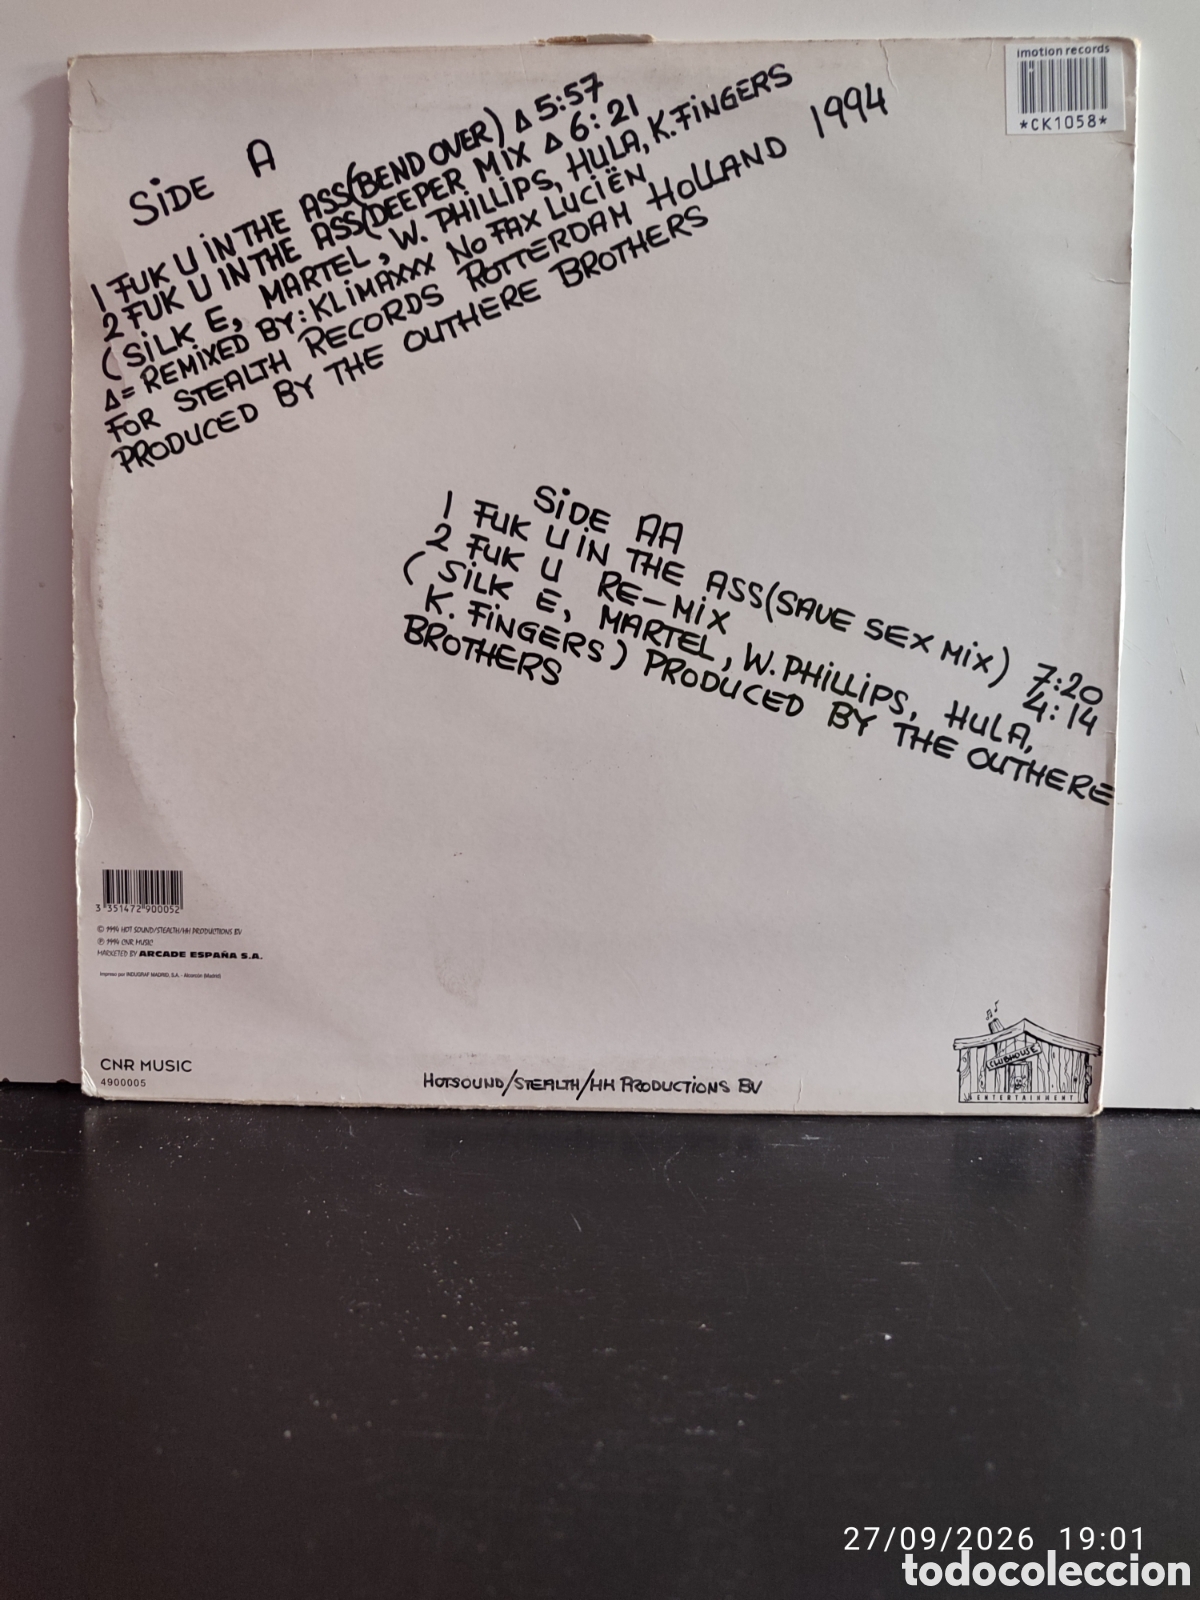 imotion records
*CK1058*
SiDE A
1 FUK U iN THE ASS(BEND OVER) Δ 5:57
2 FUK U IN THE ASS(DEEPER MIX Δ 6:21
(SiLK E, MARTEL, W. PHILLIPS, HULA, K.FINGERS
Δ= REMiXED BY: KLiMAXXX NO FAX LUCIËN
FOR STEALTH RECORDS ROTTERDAM HOLLAND 1994
PRODUCED BY THE OUTHERE BROTHERS
SiDE AA
1 FUK U iN THE ASS(SAVE SEX MiX) 7:20
2 FUK U RE-MiX 4:14
(SiLK E, MARTEL, W. PHiLLiPS, HULA,
K. FiNGERS) PRODUCED BY THE OUTHERE
BROTHERS
3 351472 900052
© 1994 HOT SOUND/STEALTH/HH PRODUCTIONS BV
℗ 1994 CNR MUSIC
MARKETED BY ARCADE ESPAÑA S.A.
Impreso por INDUGRAF MADRID, S.A. - Alcorcón (Madrid)
CNR MUSIC
4900005
HOTSOUND/STEALTH/HH PRODUCTiONS BV
CLUBHOUSE
ENTERTAINMENT
27/09/2026 19:01
todocoleccion